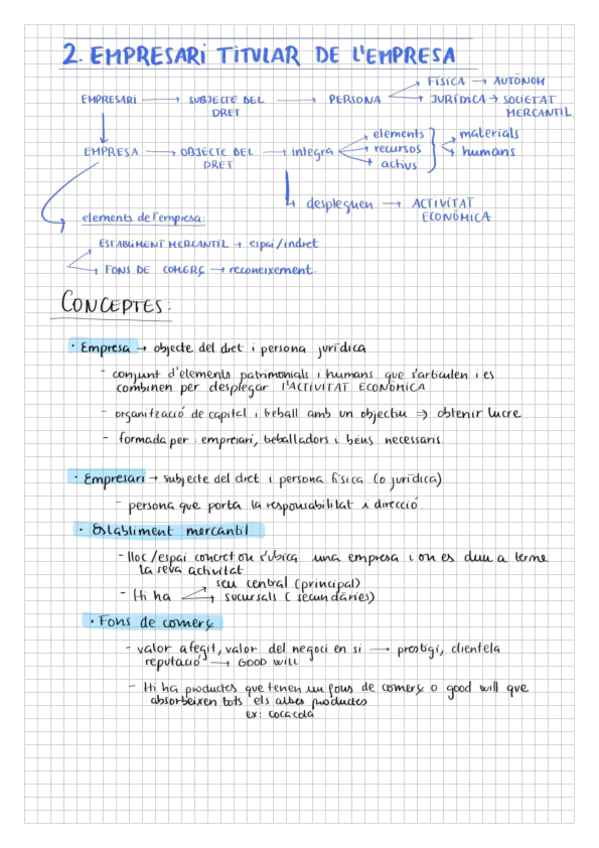 2. EMPRESARI TITULAR DE L'EMPRESA
EMPRESARI → SUBJECTE DEL DRET → PERSONA → FÍSICA → AUTÒNOM
→ JURÍDICA → SOCIETAT MERCANTIL
EMPRESA → OBJECTE DEL DRET → integra → elements
→ recursos
→ actius
→ materials
→ humans
despleguen → ACTIVITAT ECONÒMICA
elements de l'empresa:
ESTABLIMENT MERCANTIL → espai/indret
FONS DE COMERÇ → reconeixement.
CONCEPTES:
· Empresa → objecte del dret i persona jurídica
- conjunt d'elements patrimonials i humans que s'articulen i es
combinen per desplegar L'ACTIVITAT ECONÒMICA
- organització de capital i treball amb un objectiu ⇒ obtenir lucre
- formada per: empresari, treballadors i béns necessaris.
· Empresari → subjecte del dret i persona física (o jurídica)
- persona que porta la responsabilitat i direcció.
· Establiment mercantil
- lloc/espai concret on s'ubica una empresa i on es duu a terme
la seva activitat
- Hi ha → seu central (principal)
→ sucursals (secundàries)
· Fons de comerç
- valor afegit, valor del negoci en si → prestigi, clientela
reputació → GOOD WILL
- Hi ha productes que tenen un fons de comerç o good will que
absorbeixen tots els altres productes
ex: cocacola